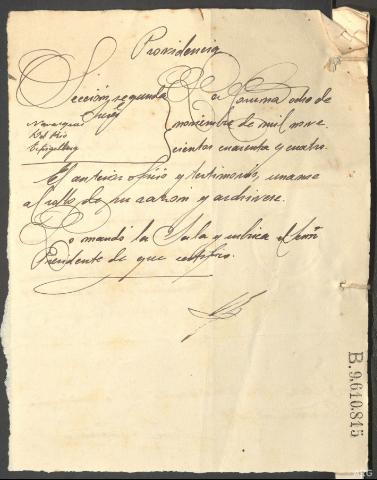 Providencia
Sección segunda
En Coruña ocho de
noviembre de mil nove-
cientos cuarenta y cuatro.
Del Rio
El anterior oficio y testimonio, unanse
al rollo de su razon y archivese.
Lo mandó la Sala y rubrica el Señor
Presidente de que certifico.
B.9.610.815